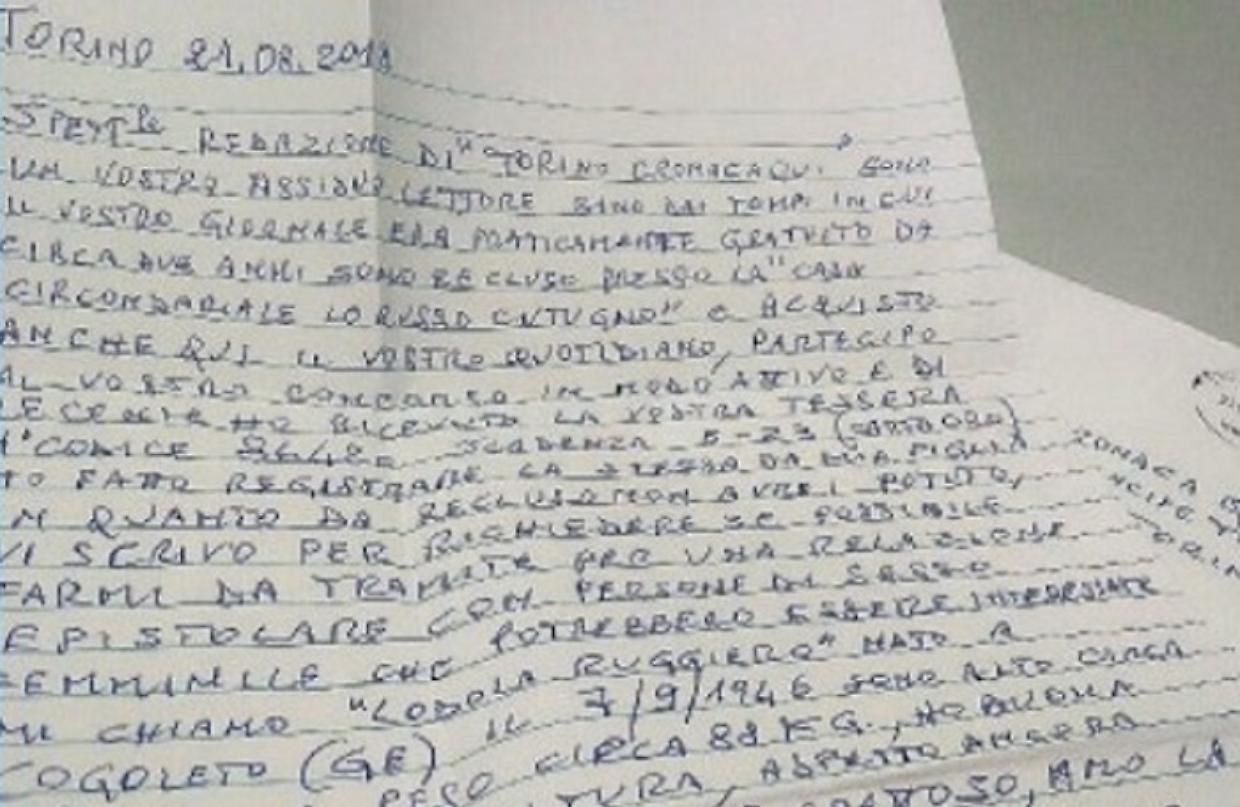 TORINO 21.08.2018
SPETT.le REDAZIONE DI "TORINO CRONACAQUI" SONO
UN VOSTRO ASSIDUO LETTORE SINO DAI TEMPI IN CUI
IL VOSTRO GIORNALE ERA PRATICAMENTE GRATUITO DA
CIRCA DUE ANNI SONO RECLUSO PRESSO LA "CASA
CIRCONDARIALE LORUSSO CUTUGNO" E ACQUISTO
ANCHE QUI IL VOSTRO QUOTIDIANO, PARTECIPO
AL VOSTRO CONCORSO IN MODO ATTIVO E DI
RECENTE HO RICEVUTO LA VOSTRA TESSERA
N° CODICE SCADENZA 5-23
HO FATTO REGISTRARE LA STESSA DA MIA FIGLIA
IN QUANTO DA RECLUSO NON AVREI POTUTO,
VI SCRIVO PER RICHIEDERE SE POSSIBILE
FARMI DA TRAMITE PER UNA RELAZIONE
EPISTOLARE CON PERSONE DI SESSO
FEMMINILE CHE POTREBBERO ESSERE INTERESSATE
MI CHIAMO RUGGIERO" NATO A
COGOLETO (GE) IL 7/9/1946 SONO ALTO CIRCA
PESO CIRCA 88 KG., HO BUONA
ASPETTO ANCORA
AMO LA